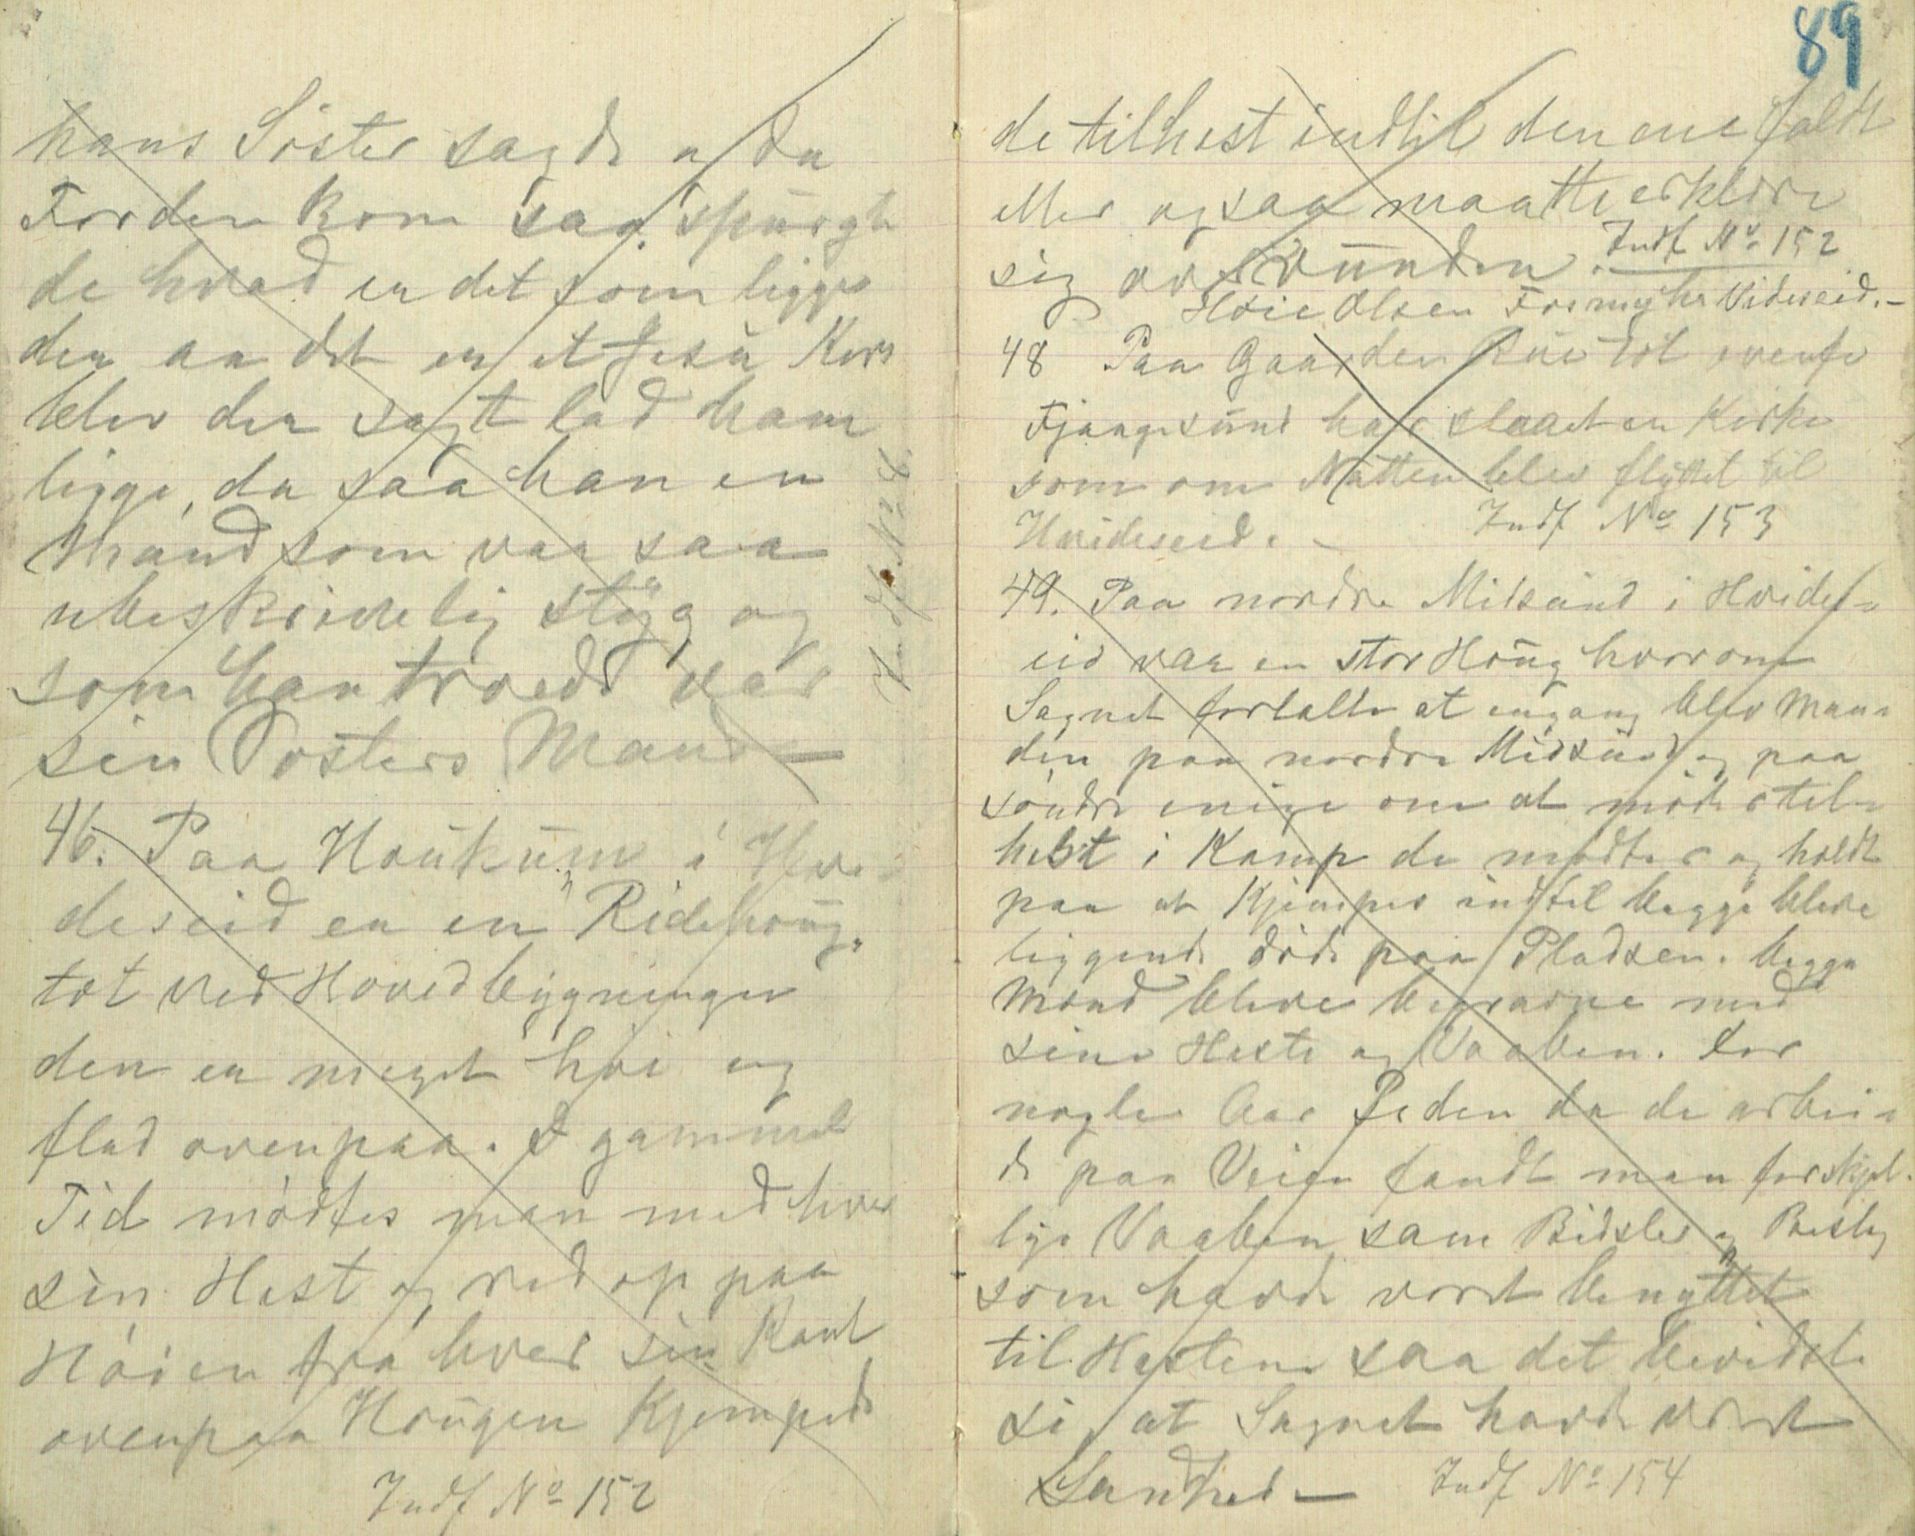 hans Söster sagde u da
Torden kom sag. spurgte
de hvad er det som ligger
der aa det er et Jesu Kors
blev der sagt lad ham
ligge, da saa han en
Mand som var saa
ubeskrivelig stÿg og
som han troede var
sin Sosters Mand –
46. Paa Houkum i Hvi-
deseid er en "Ridehoug"
tæt ved Hovedbygningen
den er meget høi og
flad ovenpaa. I gammel
Tid mödtes man med hver
sin Hest og red op paa
Höien fra hver sin Kant
ovenpaa Hougen Kjempede
Indf No 152
Indf. No
89
de tilhest indtil den ene faldt
eller ogsaa maatte erklære
sig overvunden. Indf No 152
Høie Olsen Formyhr Videseid. –
48 Paa Gaarden ovenfor
Fjaagesund har staaet en Kirke
som om Natten blev flyttet til
Hvideseid. – Indf No 153
49. Paa nordre Midsund i Hvides-
eid var en stor Houg hvorom
Sagnet fortalte at engang blev Man-
den paa nordre Midsund og paa
söndre enige om at møde stil-
hest i Kamp de mødtes og holdt
paa at Kjempes indtil begge bleve
liggende døde paa Pladsen. begge
Mænd bleve begravne med
sine Heste og Vaaben. For
nogle Aar siden da de arbei-
de paa Veien fandt man forskjel-
lige Vaaben sam Bidsler og Beslag
som havde været benyttet
til Hestene saa det beviste
sig at Sagnet havde været
Sandhed – Indf No 154